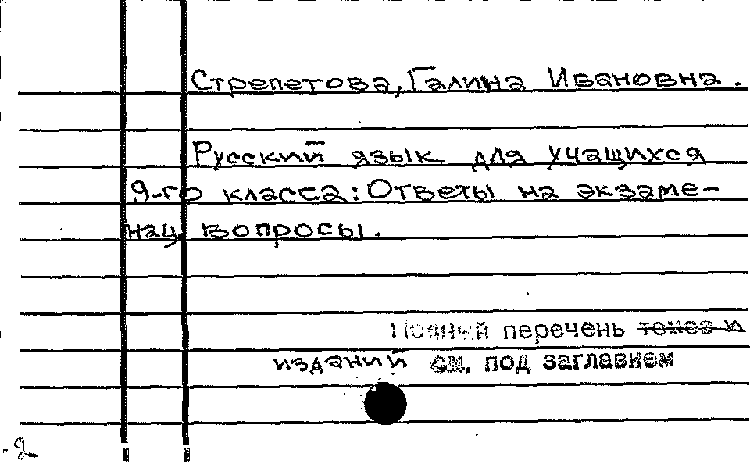 Стрепетова, Галина Ивановна.
Русский язык для учащихся
9-го класса: Ответы на экзаме-
нац. вопросы.
Полный перечень томов и
изданий см. под заглавием